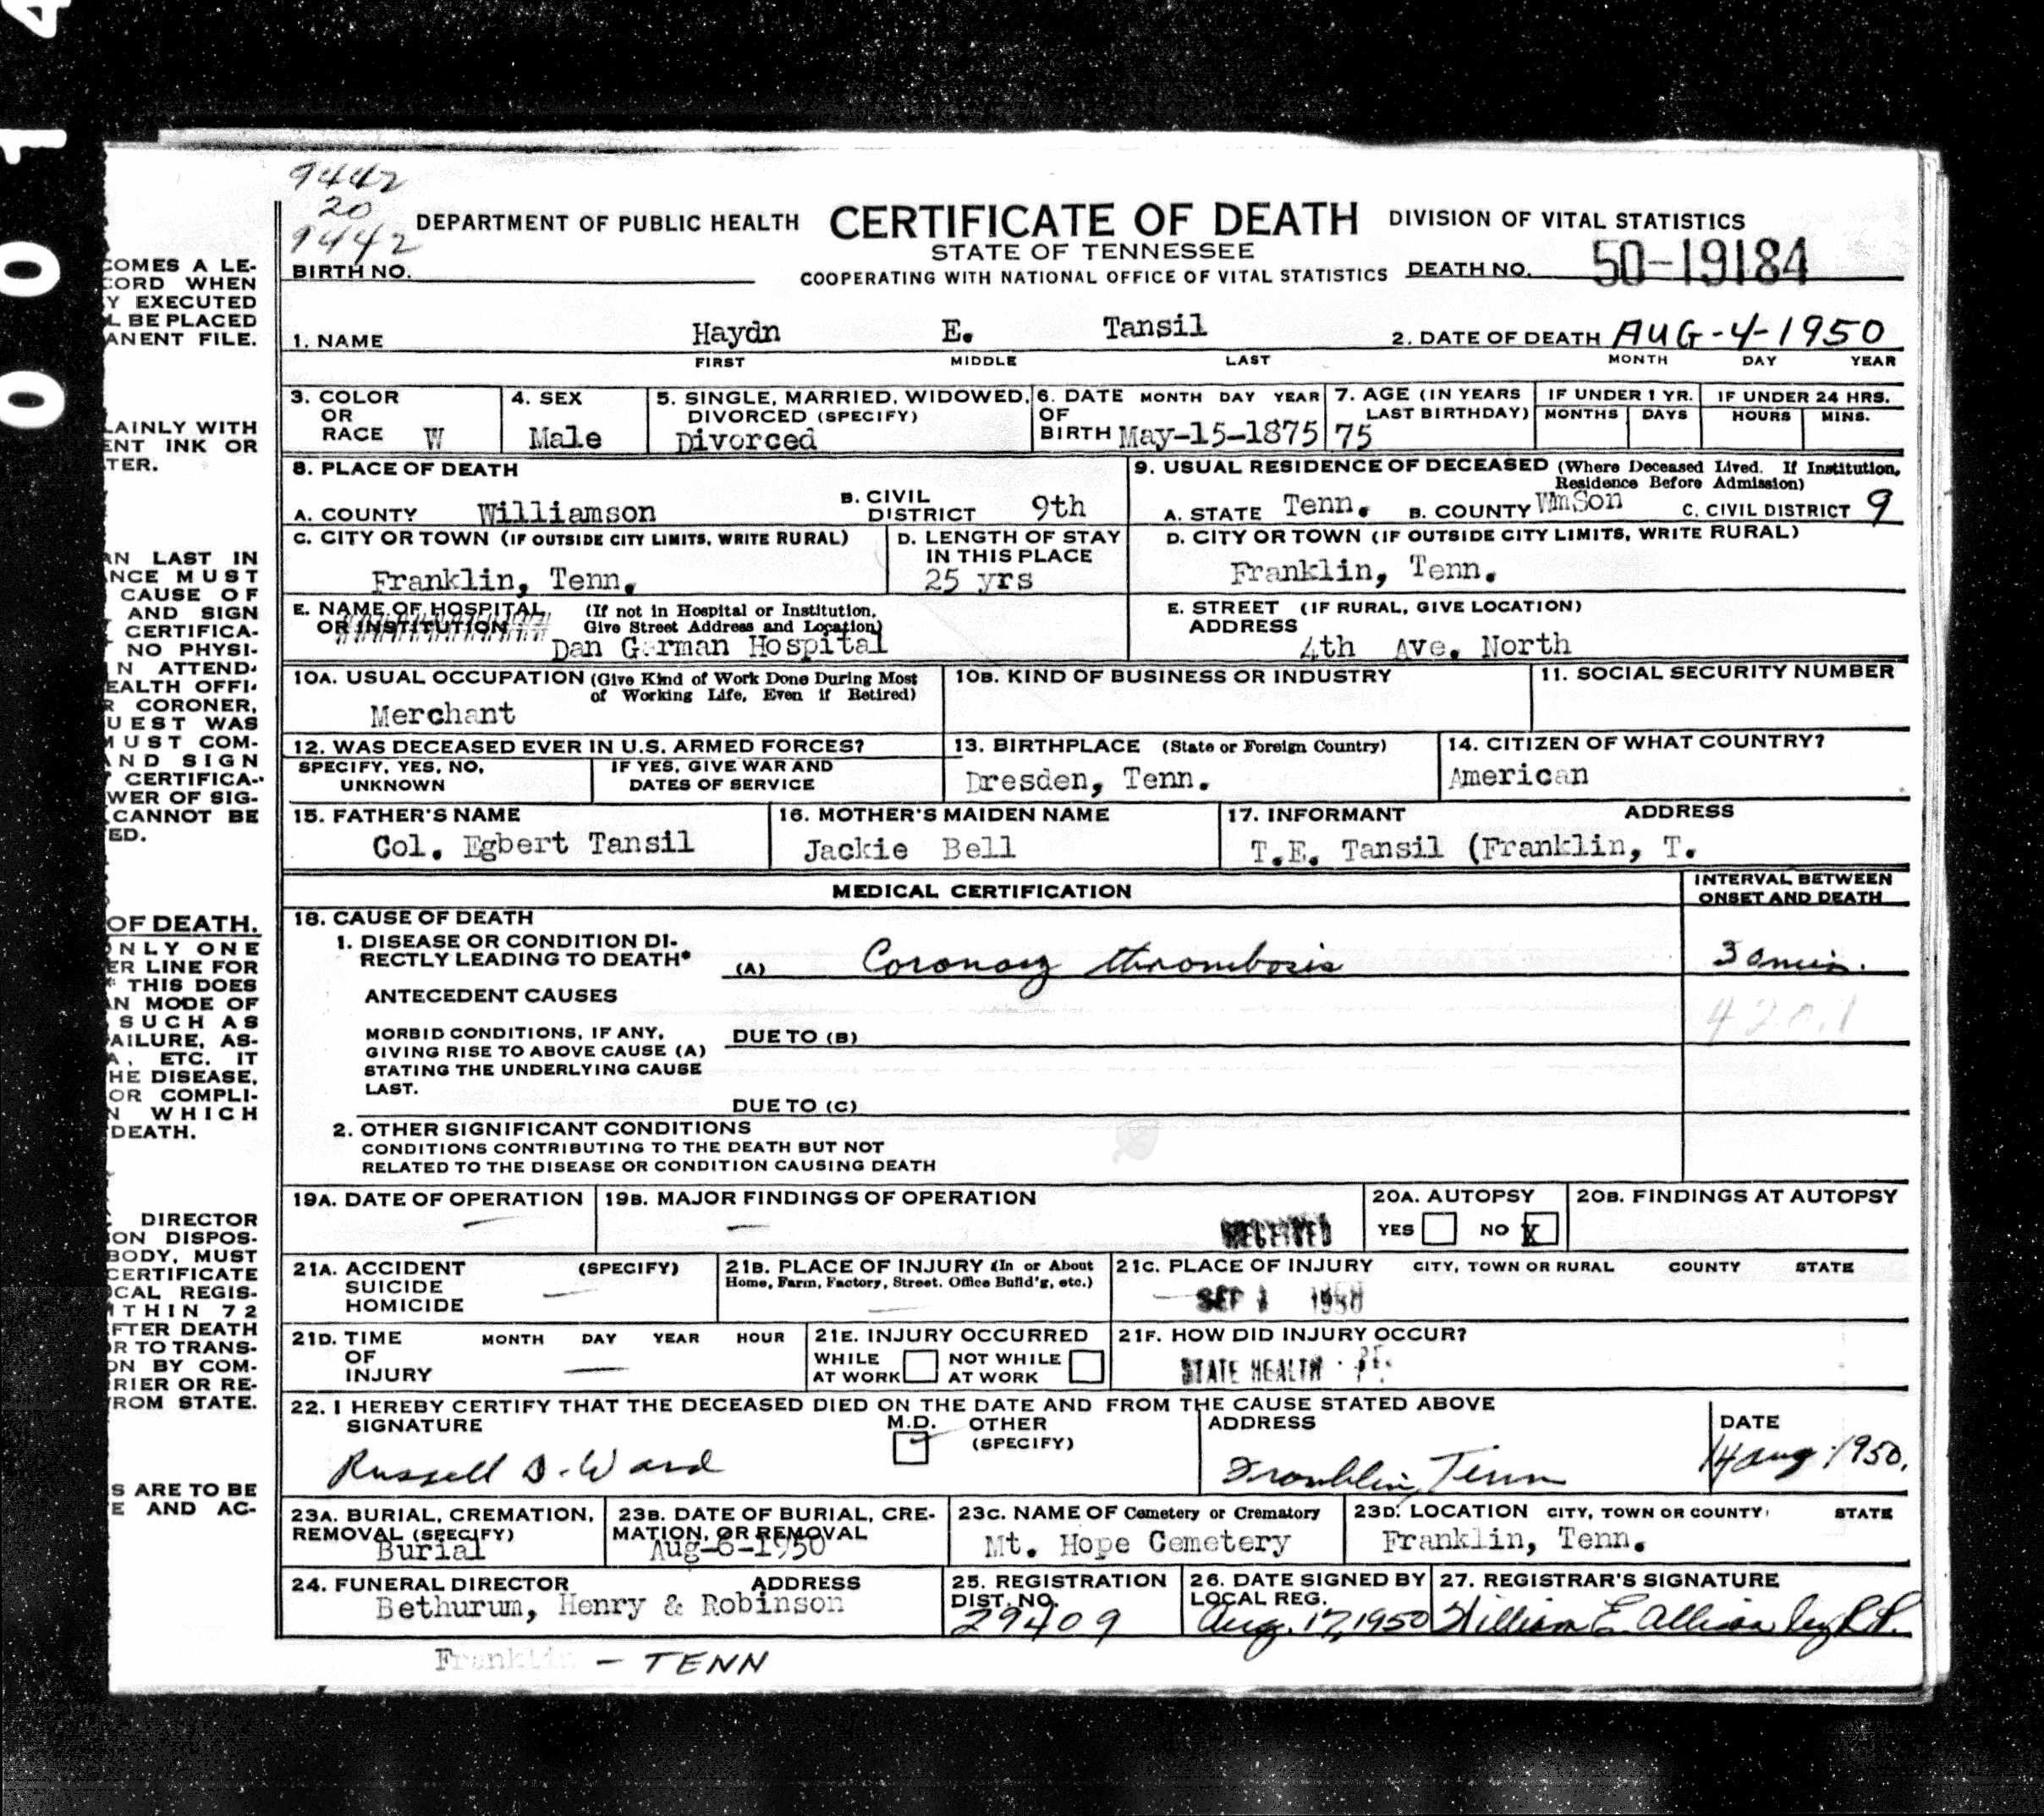 0 0 1 4
9442
20
9442
DEPARTMENT OF PUBLIC HEALTH CERTIFICATE OF DEATH DIVISION OF VITAL STATISTICS
STATE OF TENNESSEE
BIRTH NO. COOPERATING WITH NATIONAL OFFICE OF VITAL STATISTICS DEATH NO. 50-19184
1. NAME Haydn E. Tansil 2. DATE OF DEATH AUG-4-1950
FIRST MIDDLE LAST MONTH DAY YEAR
3. COLOR OR RACE W
4. SEX Male
5. SINGLE, MARRIED, WIDOWED, DIVORCED (SPECIFY) Divorced
6. DATE OF BIRTH MONTH DAY YEAR May-15-1875
7. AGE (IN YEARS LAST BIRTHDAY) 75
IF UNDER 1 YR. MONTHS DAYS
IF UNDER 24 HRS. HOURS MINS.
8. PLACE OF DEATH
A. COUNTY Williamson B. CIVIL DISTRICT 9th
9. USUAL RESIDENCE OF DECEASED (Where Deceased Lived. If Institution, Residence Before Admission)
A. STATE Tenn. B. COUNTY WmSon C. CIVIL DISTRICT 9
C. CITY OR TOWN (IF OUTSIDE CITY LIMITS, WRITE RURAL) Franklin, Tenn.
D. LENGTH OF STAY IN THIS PLACE 25 yrs
D. CITY OR TOWN (IF OUTSIDE CITY LIMITS, WRITE RURAL) Franklin, Tenn.
E. NAME OF HOSPITAL OR INSTITUTION (If not in Hospital or Institution, Give Street Address and Location) Dan German Hospital
E. STREET ADDRESS (IF RURAL, GIVE LOCATION) 4th Ave. North
10A. USUAL OCCUPATION (Give Kind of Work Done During Most of Working Life, Even if Retired) Merchant
10B. KIND OF BUSINESS OR INDUSTRY
11. SOCIAL SECURITY NUMBER
12. WAS DECEASED EVER IN U.S. ARMED FORCES?
SPECIFY, YES, NO, UNKNOWN
IF YES, GIVE WAR AND DATES OF SERVICE
13. BIRTHPLACE (State or Foreign Country) Dresden, Tenn.
14. CITIZEN OF WHAT COUNTRY? American
15. FATHER'S NAME Col. Egbert Tansil
16. MOTHER'S MAIDEN NAME Jackie Bell
17. INFORMANT ADDRESS T.E. Tansil (Franklin, T.
MEDICAL CERTIFICATION
INTERVAL BETWEEN ONSET AND DEATH
18. CAUSE OF DEATH
1. DISEASE OR CONDITION DIRECTLY LEADING TO DEATH* (A) Coronary thrombosis 30 min.
ANTECEDENT CAUSES
420.1
MORBID CONDITIONS, IF ANY, GIVING RISE TO ABOVE CAUSE (A) STATING THE UNDERLYING CAUSE LAST.
DUE TO (B)
DUE TO (C)
2. OTHER SIGNIFICANT CONDITIONS
CONDITIONS CONTRIBUTING TO THE DEATH BUT NOT
RELATED TO THE DISEASE OR CONDITION CAUSING DEATH
19A. DATE OF OPERATION —
19B. MAJOR FINDINGS OF OPERATION —
RECEIVED
20A. AUTOPSY YES NO X
20B. FINDINGS AT AUTOPSY
21A. ACCIDENT SUICIDE HOMICIDE (SPECIFY) —
21B. PLACE OF INJURY (In or About Home, Farm, Factory, Street, Office Build'g, etc.) —
21C. PLACE OF INJURY CITY, TOWN OR RURAL COUNTY STATE —
SEP 1 1950
21D. TIME OF INJURY MONTH DAY YEAR HOUR —
21E. INJURY OCCURRED WHILE AT WORK NOT WHILE AT WORK
21F. HOW DID INJURY OCCUR?
STATE HEALTH
22. I HEREBY CERTIFY THAT THE DECEASED DIED ON THE DATE AND FROM THE CAUSE STATED ABOVE
SIGNATURE M.D. OTHER (SPECIFY) ADDRESS DATE
Russell D. Ward Franklin, Tenn 14 Aug. 1950.
23A. BURIAL, CREMATION, REMOVAL (SPECIFY) Burial
23B. DATE OF BURIAL, CREMATION, OR REMOVAL Aug-6-1950
23C. NAME OF Cemetery or Crematory Mt. Hope Cemetery
23D. LOCATION CITY, TOWN OR COUNTY STATE Franklin, Tenn.
24. FUNERAL DIRECTOR ADDRESS Bethurum, Henry & Robinson
25. REGISTRATION DIST. NO. 29409
26. DATE SIGNED BY LOCAL REG. Aug. 17, 1950
27. REGISTRAR'S SIGNATURE William E. Allison by
Franklin - TENN
COMES A LE-
CORD WHEN
Y EXECUTED
L BE PLACED
ANENT FILE.
LAINLY WITH
ENT INK OR
TER.
AN LAST IN
NCE MUST
CAUSE OF
AND SIGN
CERTIFICA-
NO PHYSI-
N ATTEND-
EALTH OFFI-
R CORONER,
UEST WAS
MUST COM-
AND SIGN
CERTIFICA-
WER OF SIG-
CANNOT BE
ED.
OF DEATH.
ONLY ONE
ER LINE FOR
* THIS DOES
AN MODE OF
SUCH AS
AILURE, AS-
A, ETC. IT
HE DISEASE,
OR COMPLI-
N WHICH
DEATH.
DIRECTOR
ION DISPOS-
BODY, MUST
CERTIFICATE
OCAL REGIS-
ITHIN 72
FTER DEATH
R TO TRANS-
ON BY COM-
RIER OR RE-
ROM STATE.
S ARE TO BE
E AND AC-